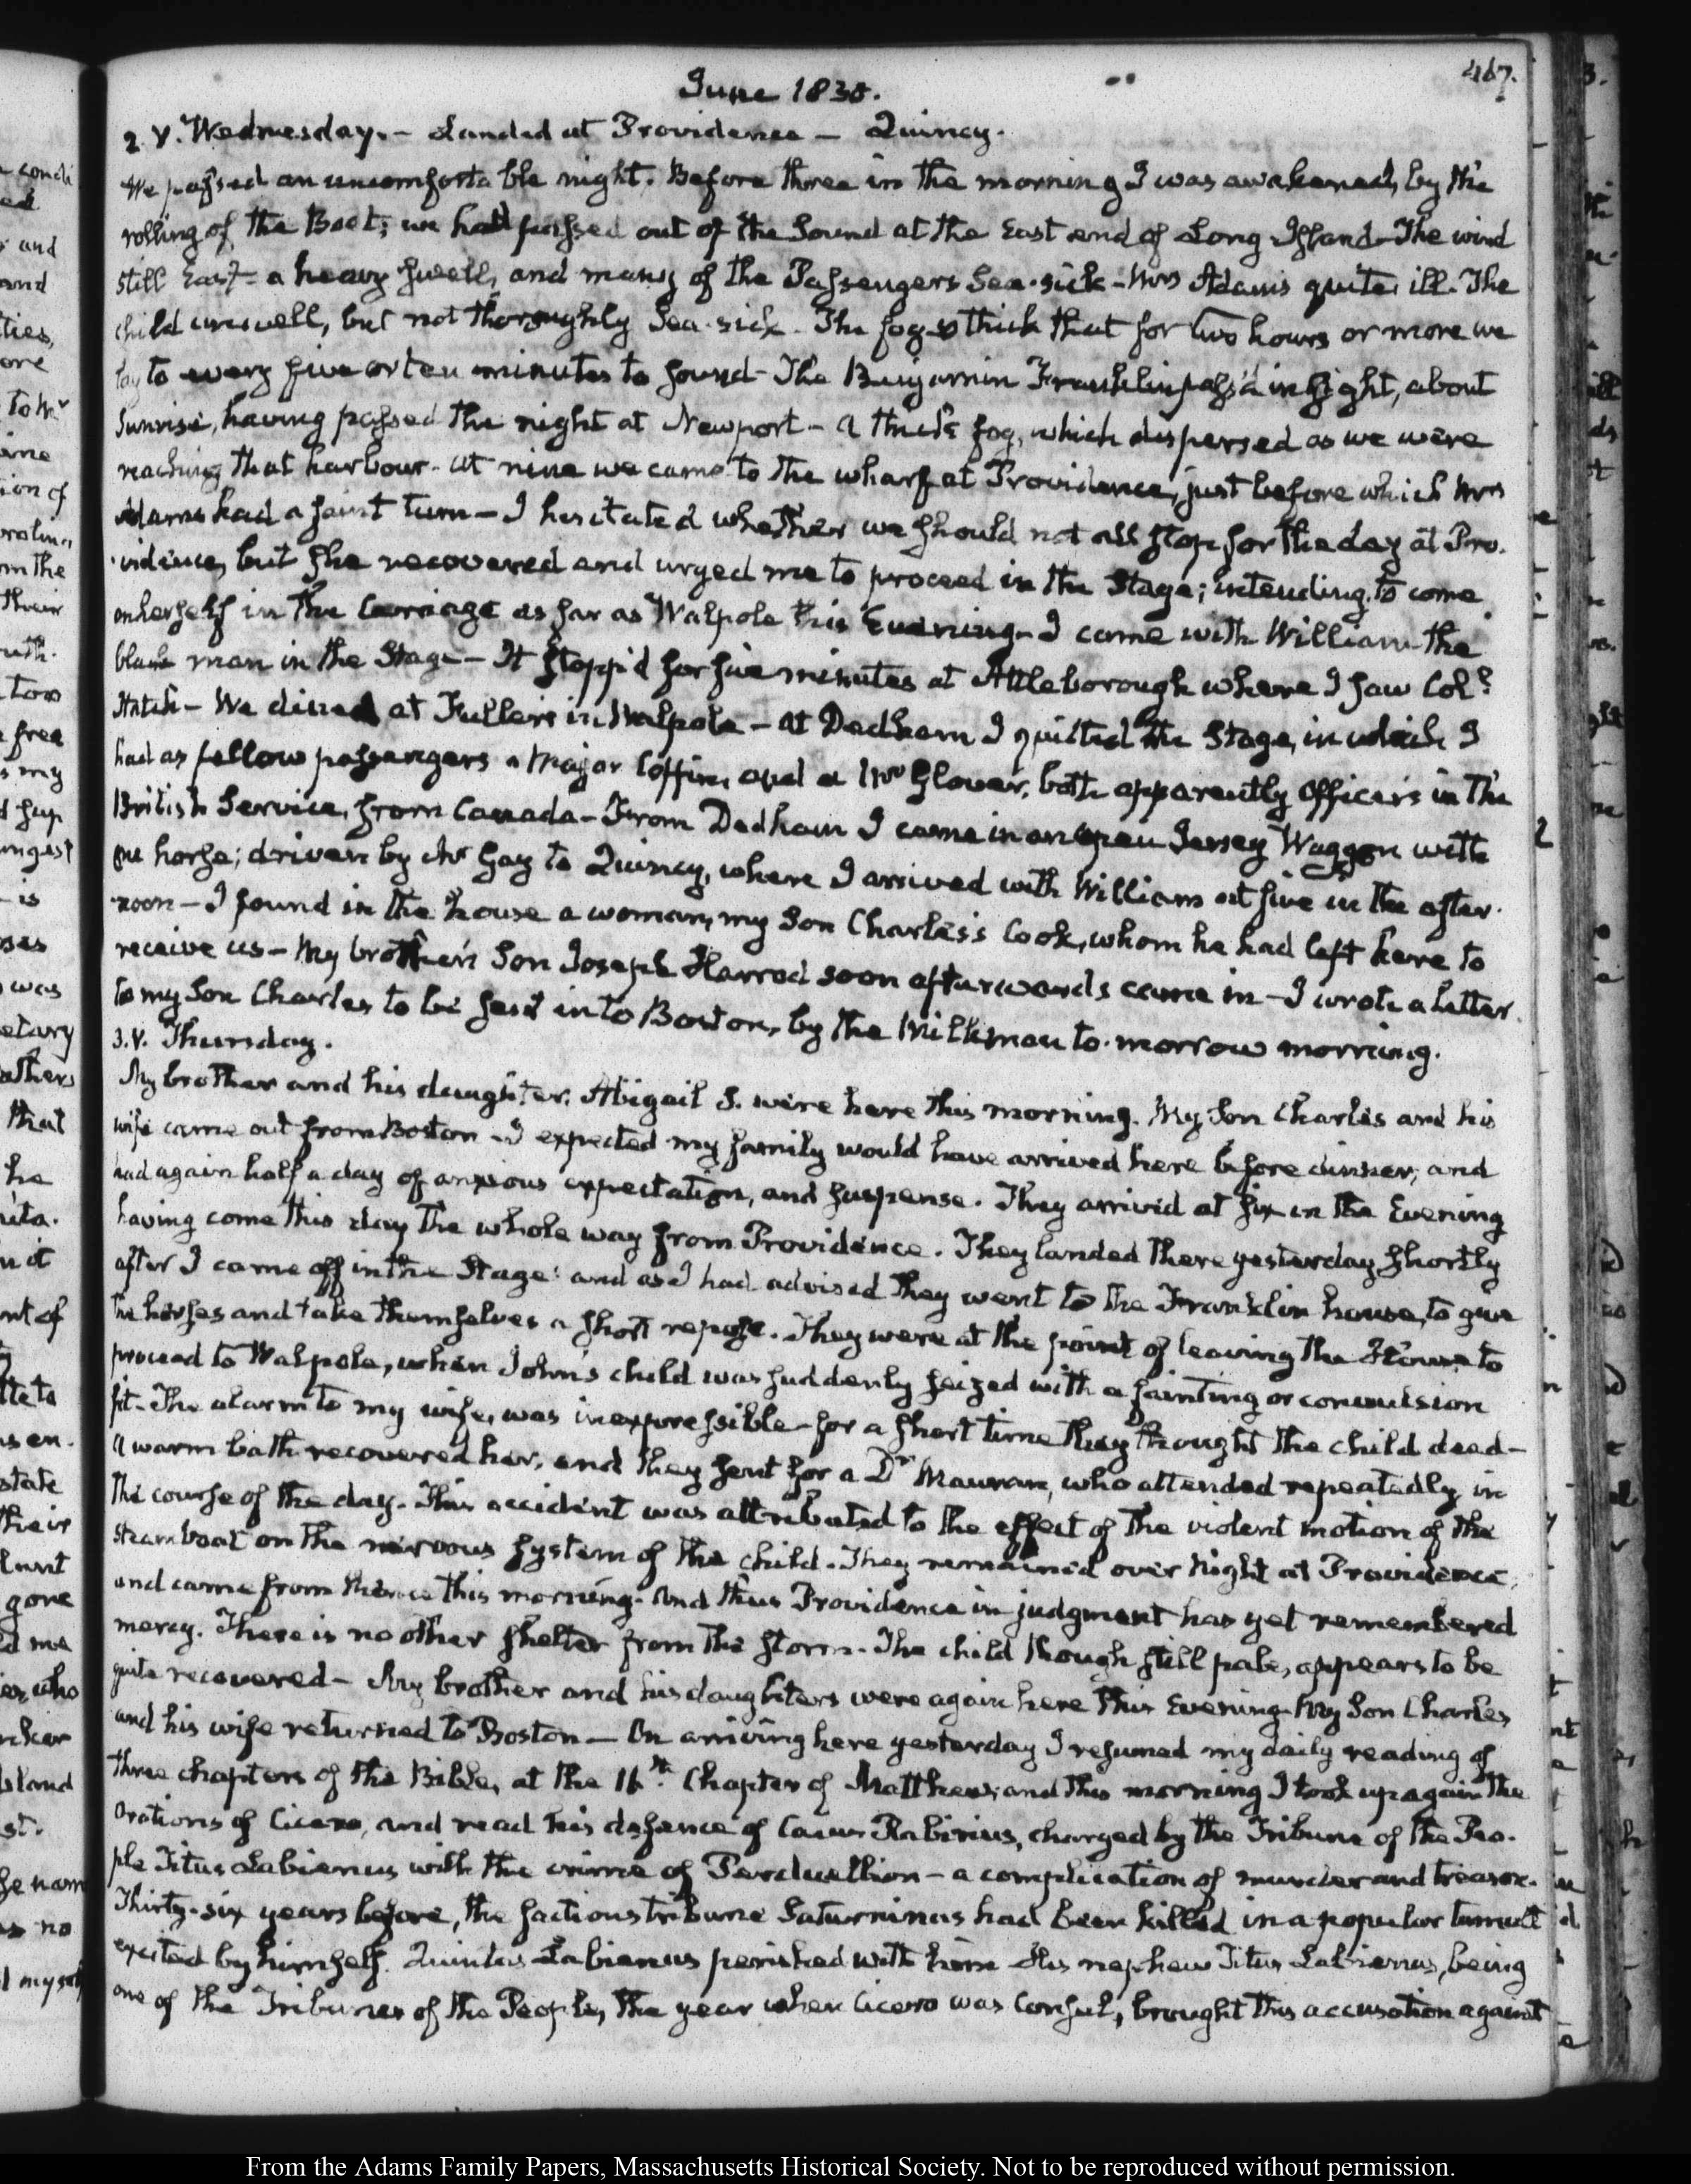 467.
June 1830.
2. V. Wednesday. – Landed at Providence – Quincy.
We passed an uncomfortable night. Before three in the morning I was awakened, by the
rolling of the Boat; we had passed out of the Sound at the East end of Long Island – The wind
still East – a heavy swell, and many of the Passengers Sea-sick – Mrs Adams quite ill. The
child unwell, but not thoroughly Sea-sick. The fog so thick that for two hours or more we
lay to every five or ten minutes to sound – The Benjamin Franklin pass'd in sight, about
Sunrise, having passed the night at Newport – a thick fog, which dispersed as we were
reaching that harbour – at nine we came to the wharf at Providence, just before which Mrs
Adams had a faint turn – I hesitated whether we should not all stop for the day at Pro-
vidence, but she recovered and urged me to proceed in the Stage; intending to come
on herself in the Carriage as far as Walpole this Evening – I came with William the
black man in the Stage – It stopp'd for five minutes at Attleborough where I saw Coll
Hatch – We dined at Fuller's in Walpole – at Dedham I quitted the Stage, in which I
had as fellow passengers a Major Coffin, and a Mr Glover, both apparently Officers in the
British Service, from Canada – From Dedham I came in an open Jersey Waggon with
one horse; driven by Mr Gay to Quincy, where I arrived with William at five in the after-
noon – I found in the house a woman, my Son Charles's Cook, whom he had left here to
receive us – My brother's Son Joseph Harrod soon afterwards came in – I wrote a letter
to my Son Charles to be sent into Boston, by the Milkman to-morrow morning.
3. V. Thursday.
My brother and his daughter, Abigail S. were here this morning. My Son Charles and his
wife came out from Boston – I expected my family would have arrived here before dinner, and
had again half a day of anxious expectation, and suspense. They arrived at six in the Evening
having come this day the whole way from Providence. They landed there yesterday shortly
after I came off in the Stage: and as I had advised they went to the Franklin house, to give
the horses and take themselves a short repose. They were at the point of leaving the House to
proceed to Walpole, when John's child was suddenly seized with a fainting or convulsion
fit – The alarm to my wife, was inexpressible – for a short time they thought the child dead –
A warm bath recovered her, and they sent for a Dr Mauran, who attended repeatedly in
the course of the day. This accident was attributed to the effect of the violent motion of the
steamboat on the nervous system of the child. They remained over Night at Providence,
and came from thence this morning. And thus Providence in judgment has yet remembered
mercy. There is no other shelter from the storm. The child though still pale, appears to be
quite recovered – My brother and his daughters were again here this Evening – My Son Charles
and his wife returned to Boston – On arriving here yesterday I resumed my daily reading of
three chapters of the Bible, at the 16th Chapter of Matthew; and this morning I took up again the
Orations of Cicero, and read his defence of Caius Rabirius, charged by the Tribune of the Peo-
ple Titus Labienus with the crime of Perduellion – a complication of murder and treason.
Thirty-six years before, the factious tribune Saturninus had been killed in a popular tumult
excited by himself. Quintus Labienus perished with him – His nephew Titus Labienus, being
one of the Tribunes of the People, the year when Cicero was Consul, brought this accusation against
From the Adams Family Papers, Massachusetts Historical Society. Not to be reproduced without permission.